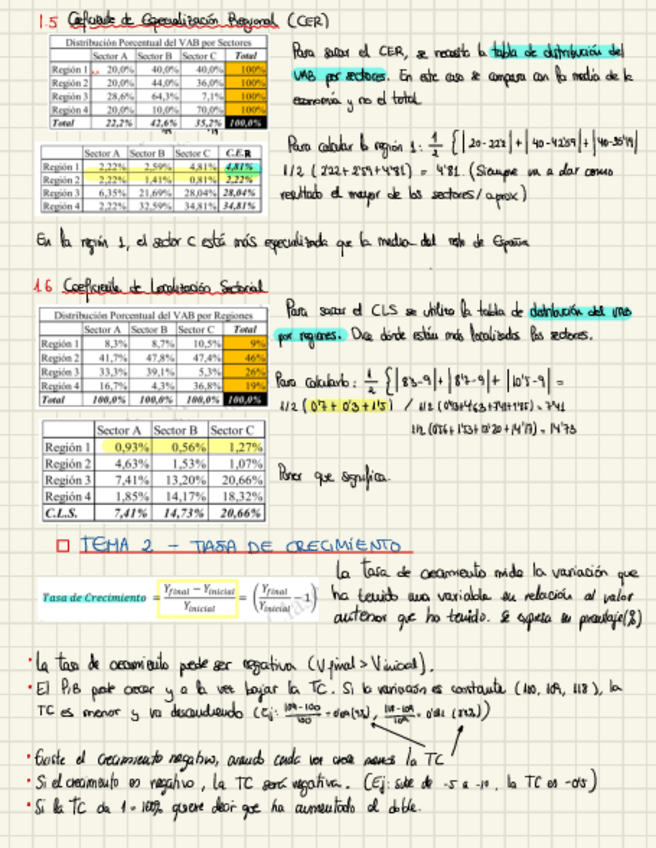 1.5 Coeficiente de Especialización Regional (CER)
Distribución Porcentual del VAB por Sectores
Sector A Sector B Sector C Total
Región 1 20,0% 40,0% 40,0% 100%
Región 2 20,0% 44,0% 36,0% 100%
Región 3 28,6% 64,3% 7,1% 100%
Región 4 20,0% 10,0% 70,0% 100%
Total 22,2% 42,6% 35,2% 100,0%
Para sacar el CER, se necesita la tabla de distribución del
VAB por sectores. En este caso se compara con la media de la
economía y no el total.
Sector A Sector B Sector C C.E.R
Región 1 2,22% 2,59% 4,81% 4,81%
Región 2 2,22% 1,41% 0,81% 2,22%
Región 3 6,35% 21,69% 28,04% 28,04%
Región 4 2,22% 32,59% 34,81% 34,81%
Para calcular la región 1: 1/2 {|20-22'2|+|40-42'59|+|40-35'19|
1/2 (2'22+2'59+4'81) = 4'81. (Siempre va a dar como
resultado el mayor de los sectores/aprox)
En la región 1, el sector C está más especializada que la media del resto de España
1.6 Coeficiente de Localización Sectorial
Distribución Porcentual del VAB por Regiones
Sector A Sector B Sector C Total
Región 1 8,3% 8,7% 10,5% 9%
Región 2 41,7% 47,8% 47,4% 46%
Región 3 33,3% 39,1% 5,3% 26%
Región 4 16,7% 4,3% 36,8% 19%
Total 100,0% 100,0% 100,0% 100,0%
Para sacar el CLS se utiliza la tabla de distribución del VAB
por regiones. Dice dónde están más localizados los sectores.
Para calcularlo: 1/2 {|8'3-9|+|8'7-9|+|10'5-9| =
1/2 (0'7+0'3+1'5) / 1/2 (0'93+4'63+7'41+1'85) = 7'41
Sector A Sector B Sector C
Región 1 0,93% 0,56% 1,27%
Región 2 4,63% 1,53% 1,07%
Región 3 7,41% 13,20% 20,66%
Región 4 1,85% 14,17% 18,32%
C.L.S. 7,41% 14,73% 20,66%
Poner que significa.
TEMA 2 - TASA DE CRECIMIENTO
Tasa de Crecimiento = (Yfinal − Yinicial)/Yinicial = (Yfinal/Yinicial − 1)
La tasa de crecimiento mide la variación que
ha tenido una variable en relación al valor
anterior que ha tenido. Se expresa en porcentaje (%)
· La tasa de crecimiento puede ser negativa (V final > V inicial).
· El PIB puede crecer y a la vez bajar la TC. Si la variación es constante (100, 109, 118), la
TC es menor y va descendiendo (Ej: 109-100/100 = 0'09 (9%), 118-109/109 =
· Existe el crecimiento negativo, cuando cada vez crece menos la TC
· Si el crecimiento es negativo, la TC será negativa. (Ej: sube de -5 a -10, la TC es -0'5)
· Si la TC da 1 = 100% quiere decir que ha aumentado el doble.